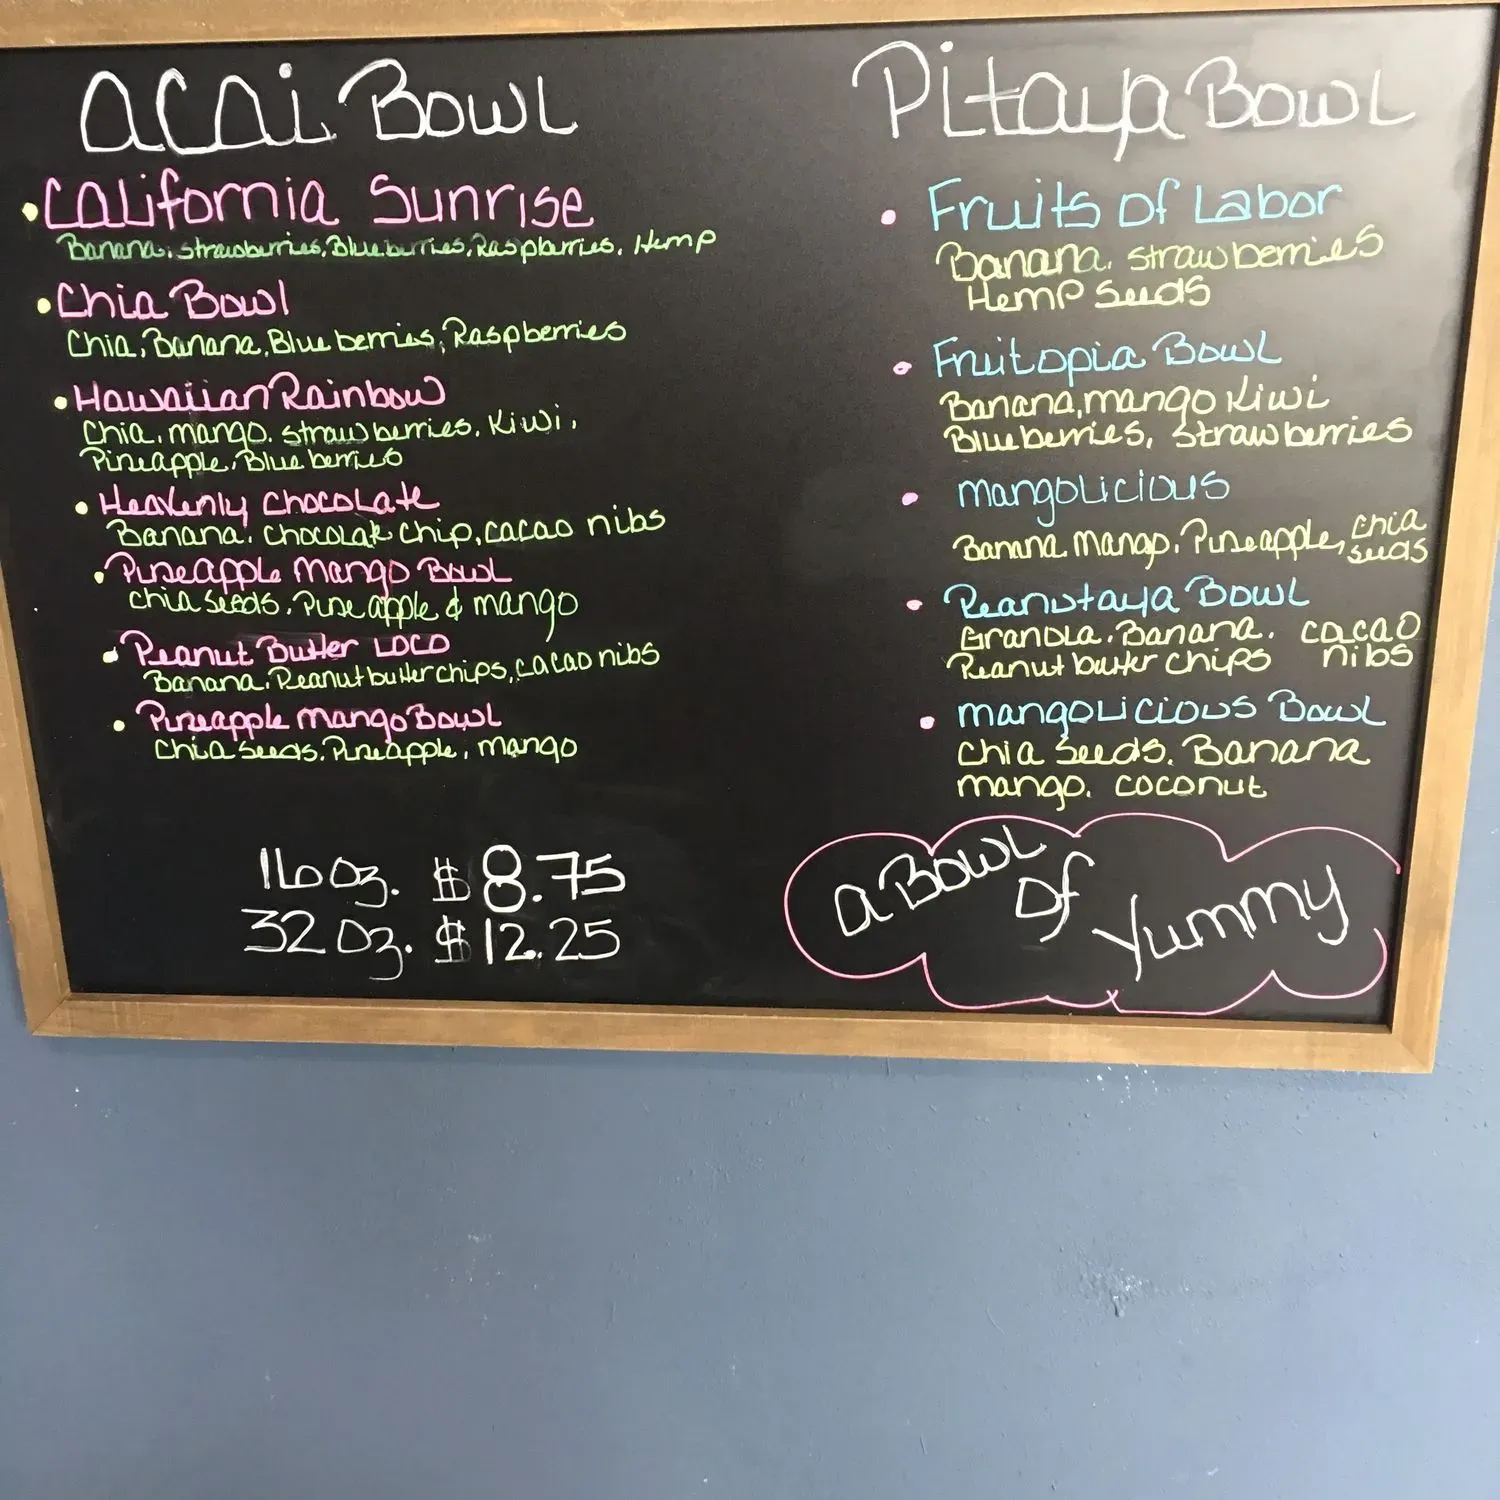 acai Bowl
California Sunrise
Banana, strawberries, Blueberries, Raspbarries, Hemp
Chia Bowl
Chia, Banana, Blueberries, Raspberries
Hawaiian Rainbow
Chia, mango, strawberries, Kiwi,
Pineapple, Blueberries
Heavenly Chocolate
Banana, Chocolate chip, cacao nibs
Pineapple Mango Bowl
chia seeds, Pineapple & mango
Peanut Butter Loco
Banana, Peanut butter chips, cacao nibs
Pineapple Mango Bowl
Chia seeds, Pineapple, mango
16 oz. $8.75
32 oz. $12.25
Pitaya Bowl
Fruits of Labor
Banana, strawberries
Hemp seeds
Fruitopia Bowl
Banana, mango Kiwi
Blueberries, strawberries
mangolicious
Banana Mango, Pineapple, chia
seeds
Peanutaya Bowl
Granola, Banana, cacao
Peanut butter chips nibs
mangolicious Bowl
chia seeds, Banana
mango, coconut
a Bowl
of
Yummy